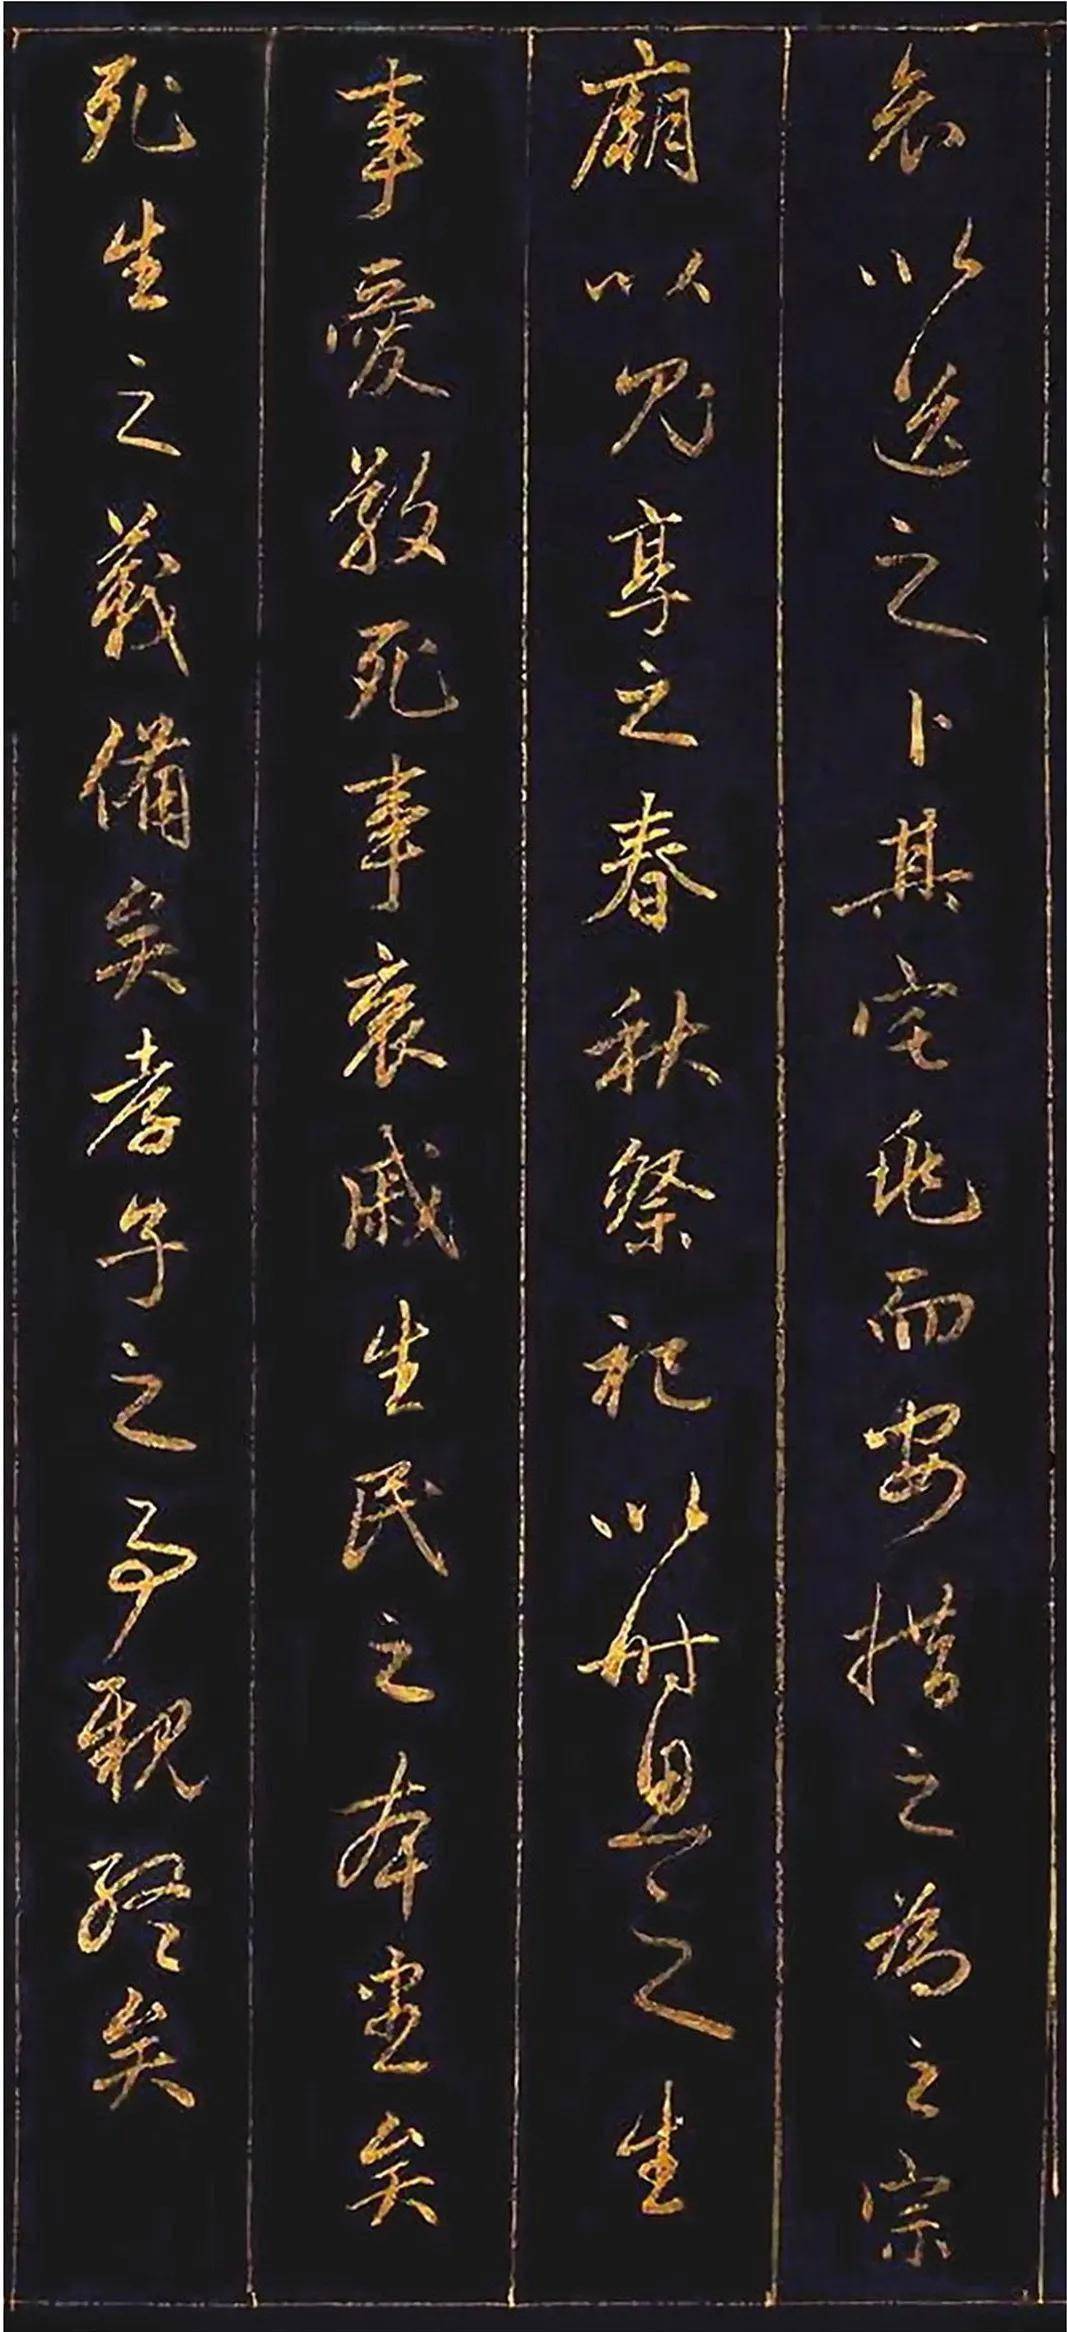 哀以送之卜其宅兆而安措之為之宗
廟以鬼享之春秋祭祀以時思之生
事愛敬死事哀慼生民之本盡矣
死生之義備矣孝子之事親終矣